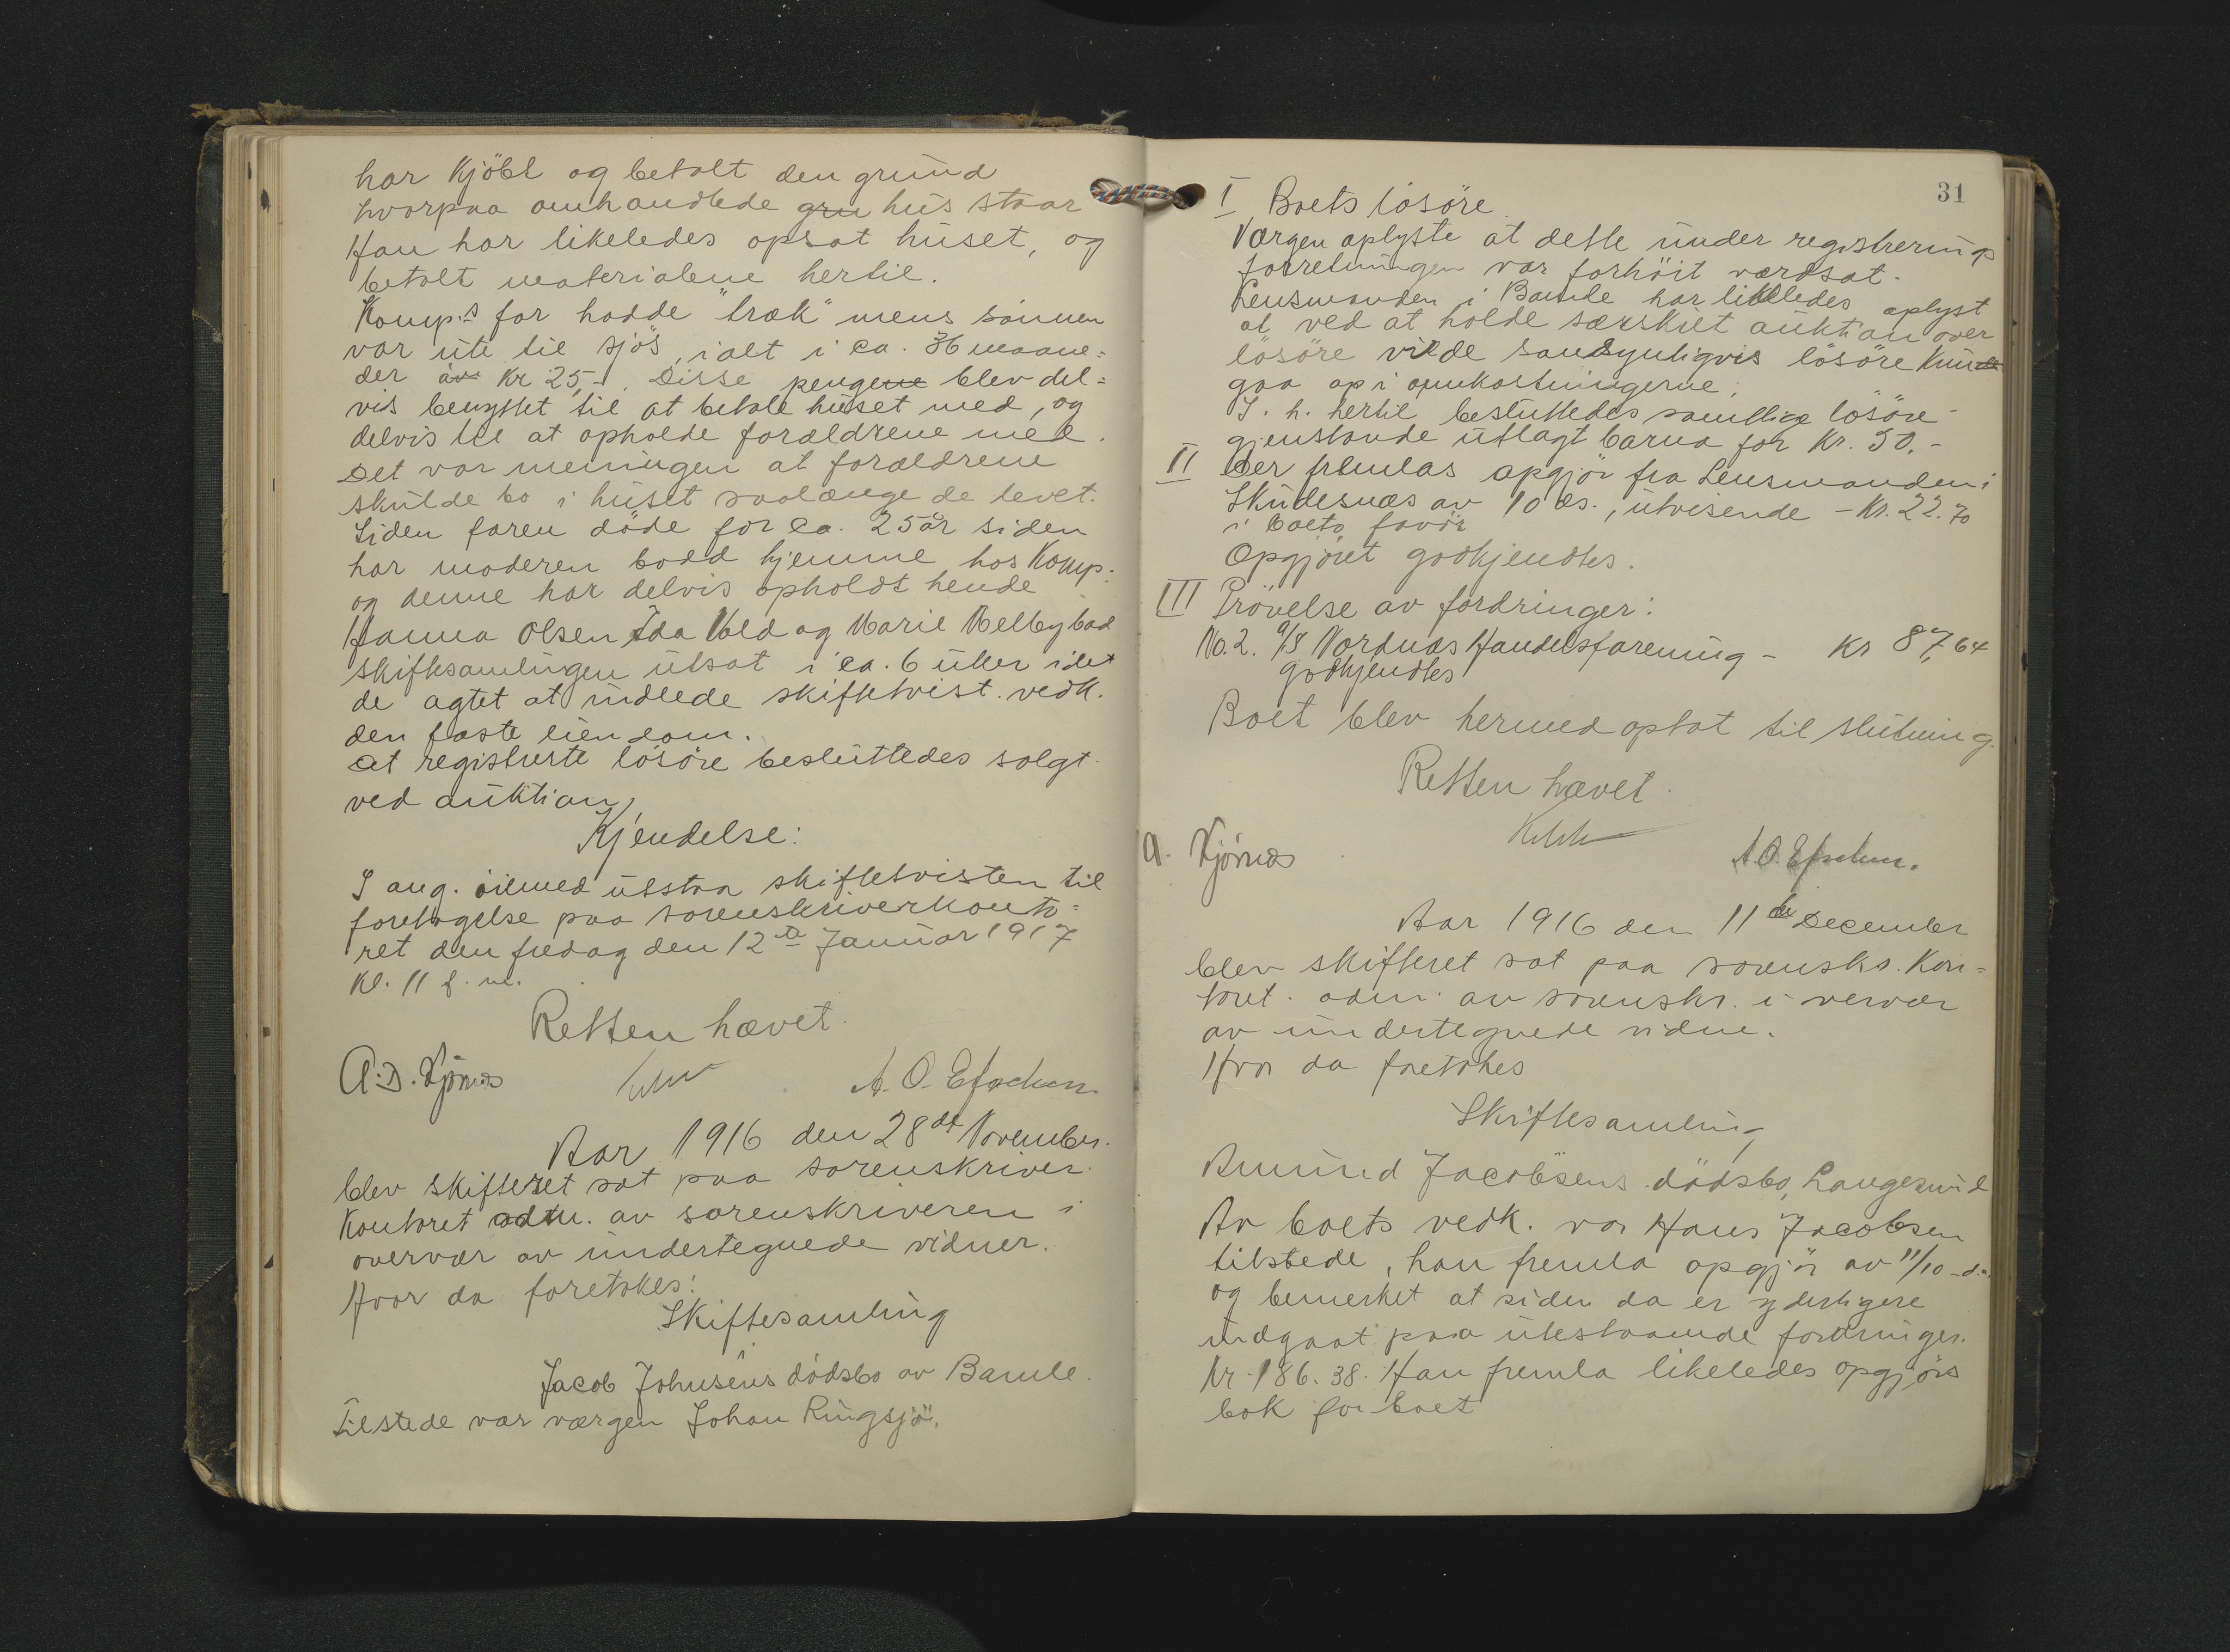 har kjöbt og betalt den grund
hvorpaa omhandlede gru hus staar
Han har likeledes opsat huset, og
betalt materialene hertil.
Komp.s far hadde "træk" mens sönnen
var ute til sjös, ialt i ca. 36 maane=
der av Kr 25,-. Disse pengene blev del=
vis benyttet til at betale huset med, og
delvis til at opholde forældrene med.
Det var meningen at forældrene
skulde bo i huset saalænge de levet.
Siden faren döde for ca. 25 år siden
har moderen bodd hjemme hos Komp.
og denne har delvis opholdt hende
Hanna Olsen Ida Vold og Marie Melby bad
skiftesamlingen utsat i ca. 6 uker idet
de agtet at indlede skiftetvist. vedk.
den faste eiendom.
at registrerte lösöre besluttedes solgt
ved auktion,
Kjendelse:
I ang. öiemed utstaa skiftetvisten til
foretagelse paa sorenskriverkonto=
ret den fredag den 12te Januar 1917
Kl. 11 f. m.
Retten hævet.
A.D. Kjörnæs
A. O.
Aar 1916 den 28de November.
blev skifteret sat paa sorenskriver
kontoret adm. av sorenskriveren i
overvær av undertegnede vidner.
Hvor da foretokes:
Skiftesamling
i
Jacob Johnsens dödsbo av Bamle.
Tilstede var værgen Johan Ringsjö.
31
I Boets lösöre
Værgen oplyste at dette under registrerings
forretningen var forhöit værdsat.
Lensmanden i Bamle har likeledes oplyst
at ved at holde særskilt auktion over
lösöre vilde sandsynligvis lösöre kunde
gaa op i omkostningerne.
I. h. hertil besluttedes samtlige lösöre-
gjenstande utlagt barna for Kr. 50.-
II Der fremlas opgjör fra Lensmanden i
Skudesnæs av 10 ds., utvisende - Kr. 22.70
i boets favör
Opgjöret godkjendtes.
III Prövelse av fordringer:
No. 2. A/S Nordnæs Handelsforening - Kr 87,64
godkjendtes
Boet blev hermed optat til slutning.
Retten hævet.
A. Kjörnæs
A. O.
Aar 1916 den 11te December
blev skifteret sat paa sorenskr. Kon=
toret. adm. av sorenskr. i overvær
av undertegnede vidne.
Hvor da foretokes
Skiftesamling
i
Amund Jacobsens dödsbo, Langesund
Av boets vedk. var Hans Jacobsen
tilstede, han fremla opgjör av 11/10 d.a.
og bemerket at siden da er yderligere
indgaat paa utestaaende fordringer.
Kr. 186.38. Han fremla likeledes opgjörs
bok for boet